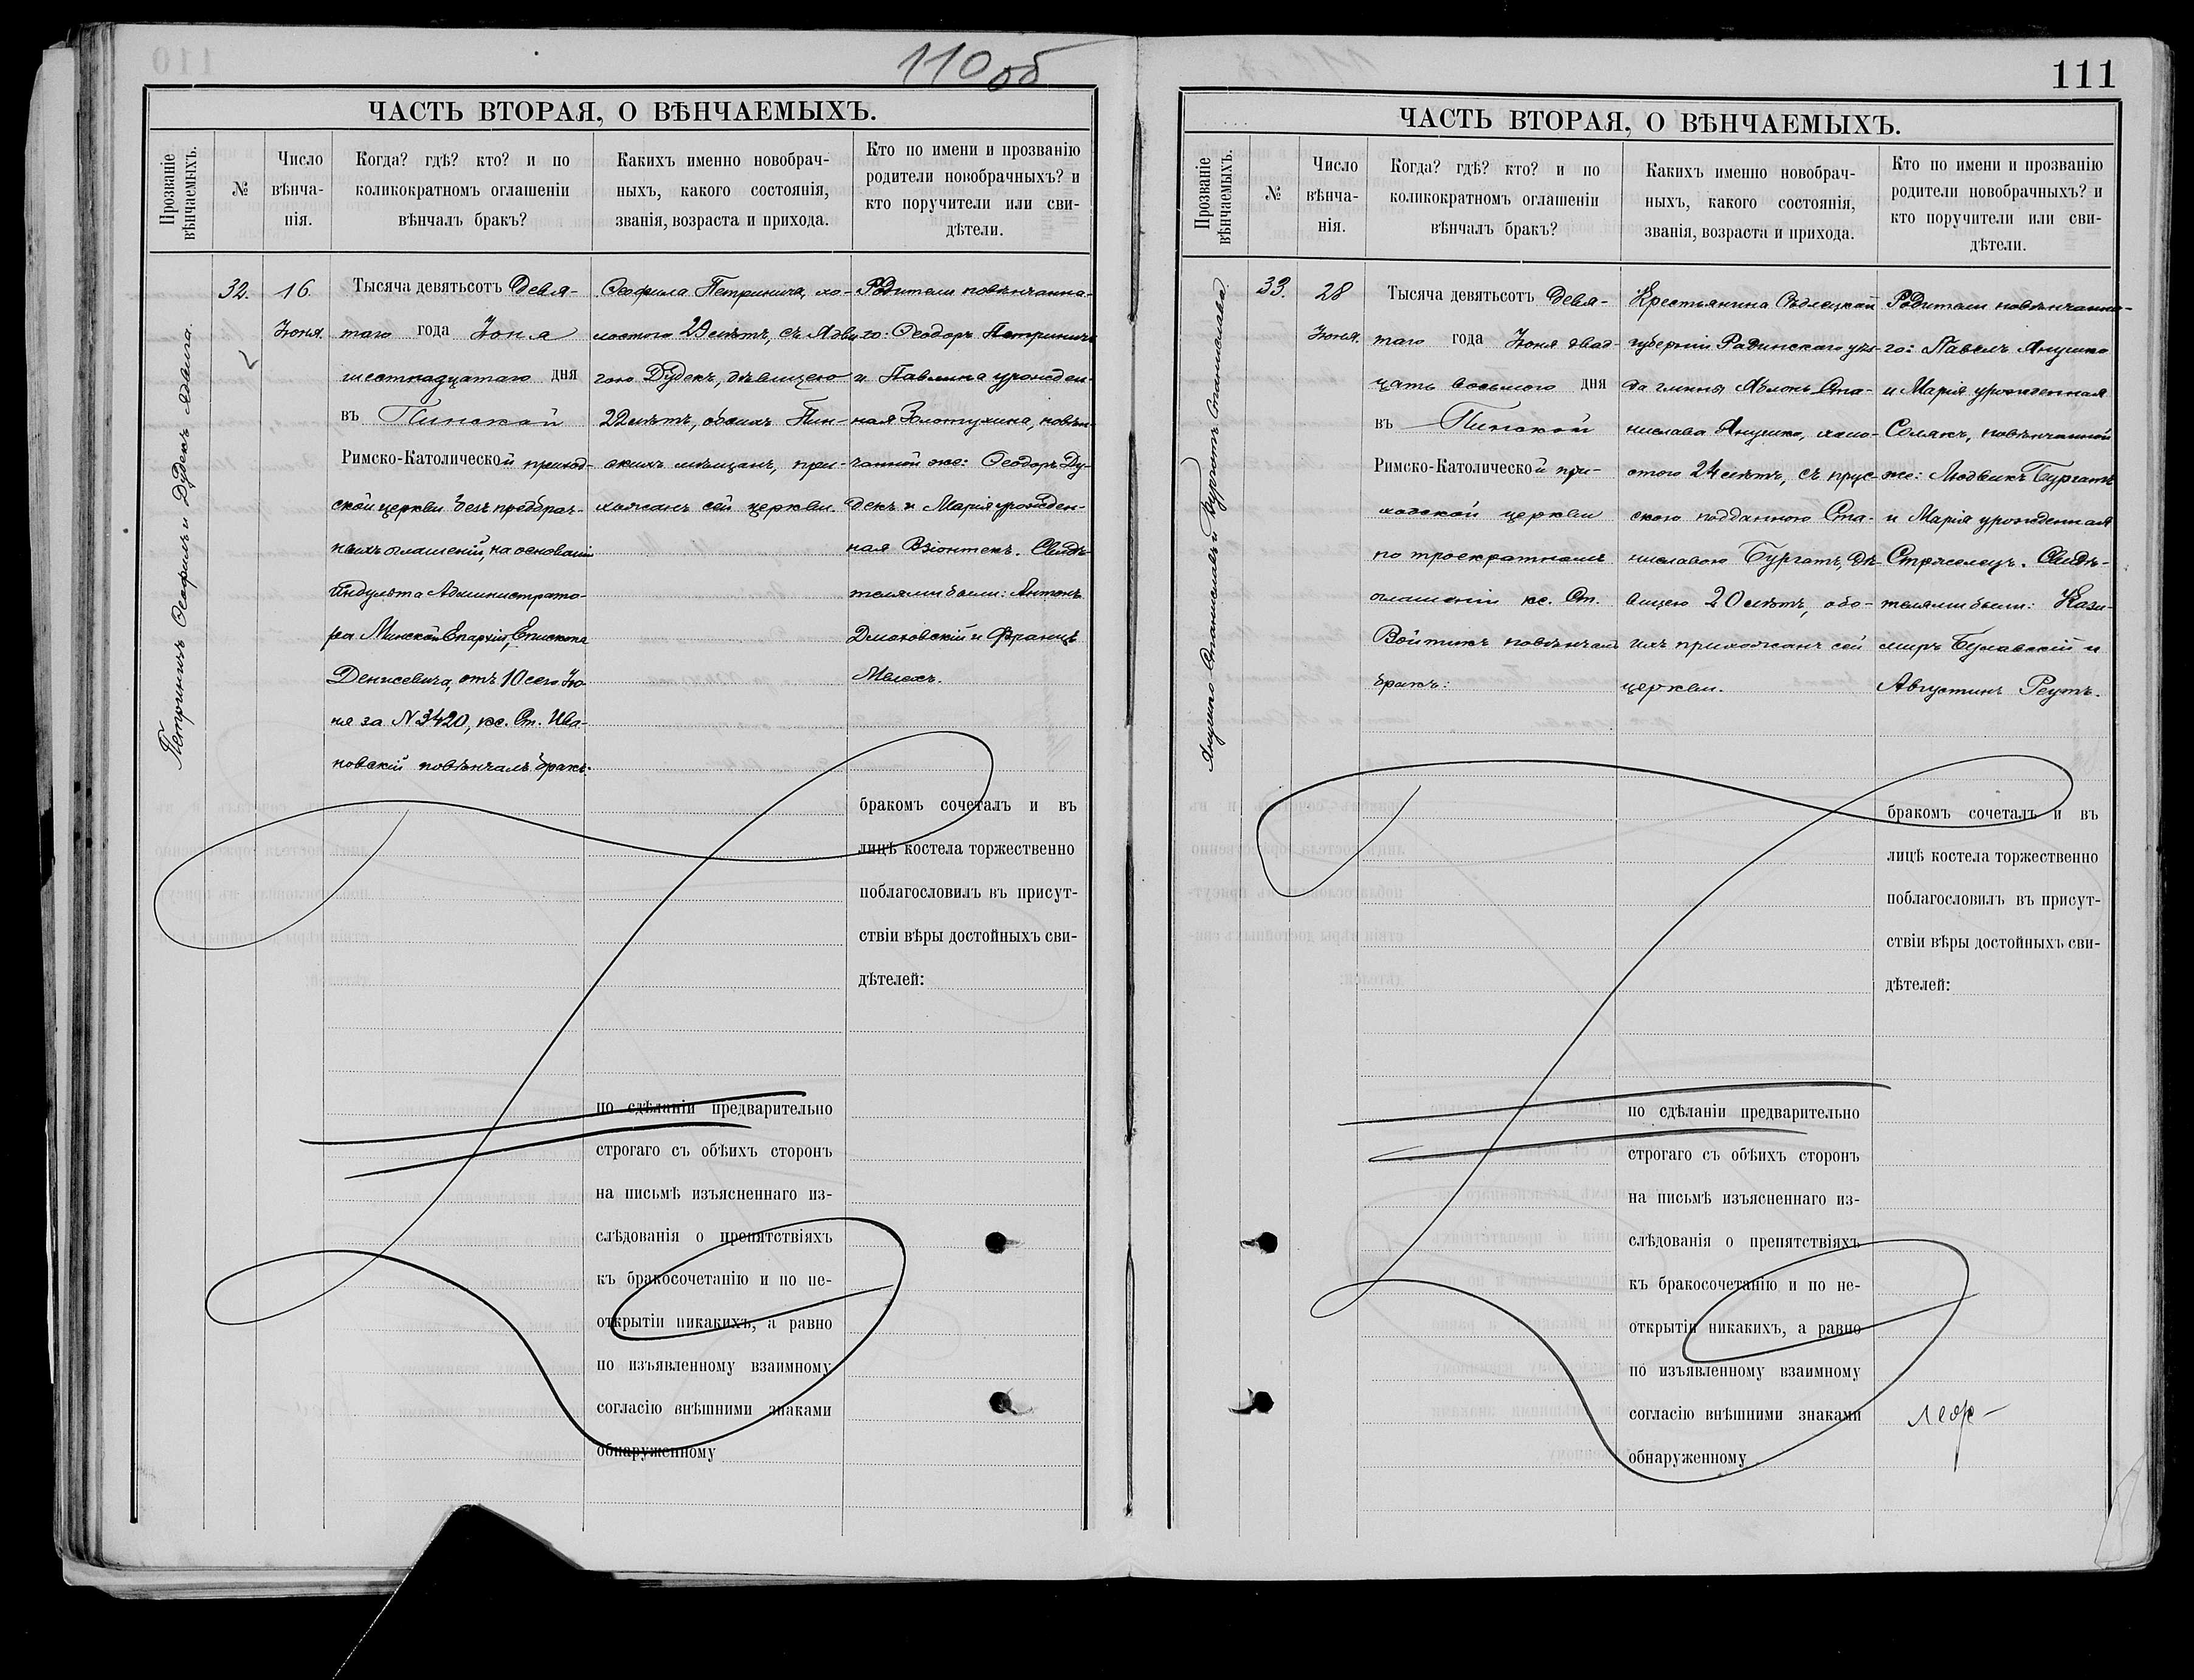 110 об
ЧАСТЬ ВТОРАЯ, О ВѢНЧАЕМЫХЪ.
Прозваніе вѣнчаемыхъ.
№
Число вѣнча-
нія.
Когда? гдѣ? кто? и по
коликократномъ оглашеніи
вѣнчалъ бракъ?
Какихъ именно новобрач-
ныхъ, какого состоянія,
званія, возраста и прихода.
Кто по имени и прозванію
родители новобрачныхъ? и
кто поручители или сви-
дѣтели.
Петриничъ Ѳеофилъ и Дудекъ Ядвига.
32.
16.
Іюня.
Тысяча девятьсотъ Девя-
таго года Іюня
шестнадцатаго дня
въ Пинской
Римско-Католической приход-
ской церкви безъ предбрач-
ныхъ оглашеній, на основаніи
Индульта Администрато-
ра Минской Епархіи, Епископа
Денисевича, отъ 10 сего Ію-
ня за N 3420, кс. Ст. Ива-
новскій повѣнчалъ бракъ.
Ѳеофила Петринича, хо-
лостого 29 лѣтъ, съ Ядви-
гою Дудекъ, дѣвицею
22 лѣтъ, обоихъ Пин-
скихъ мѣщанъ, при-
хожанъ сей церкви.
Родители повѣнчанна-
го: Ѳеодоръ Петриничъ
и Павлина урожден-
ная Золотухина, повѣн-
чанной же: Ѳеодоръ Ду-
декъ и Марія урожден-
ная Взіонтекъ. Свидѣ-
телями были: Антонъ
Дмоховскій и Францъ
Мелехъ.
бракомъ сочеталъ и въ
лицѣ костела торжественно
поблагословилъ въ присут-
ствіи вѣры достойныхъ сви-
дѣтелей:
по сдѣланіи предварительно
строгаго съ обѣихъ сторонъ
на письмѣ изъясненнаго из-
слѣдованія о препятствіяхъ
къ бракосочетанію и по не-
открытіи никакихъ, а равно
по изъявленному взаимному
согласію внѣшними знаками
обнаруженному
111
ЧАСТЬ ВТОРАЯ, О ВѢНЧАЕМЫХЪ.
Прозваніе вѣнчаемыхъ.
№
Число
вѣнча-
нія.
Когда? гдѣ? кто? и по
коликократномъ оглашеніи
вѣнчалъ бракъ?
Какихъ именно новобрач-
ныхъ, какого состоянія,
званія, возраста и прихода.
Кто по имени и прозванію
родители новобрачныхъ? и
кто поручители или сви-
дѣтели.
Янушко Станиславъ и Бургатъ Станислава.
33.
28
Іюня.
Тысяча девятьсотъ Девя-
таго года Іюня двад-
цать восьмого дня
въ Пинской
Римско-Католической при-
ходской церкви
по троекратномъ
оглашеніи кс. Ст.
Войтикъ повѣнчалъ
бракъ:
Крестьянина Сѣдлецкой
губерніи Радинскаго уѣз-
да гмины Стa-
нислава Янушко, холо-
стого 24 лѣтъ, съ прус-
скою подданною Ста-
ниславою Бургатъ, дѣ-
вицею 20 лѣтъ, обо-
ихъ прихожанъ сей
церкви.
Родители повѣнчанна-
го: Павелъ Янушко
и Марія урожденная
Солякъ, повѣнчанной
же: Людвикъ Бургатъ
и Марія урожденная
Стржелецъ. Свидѣ-
телями были: Кази-
миръ Булавскій и
Августинъ Реутъ.
бракомъ сочеталъ и въ
лицѣ костела торжественно
поблагословилъ въ присут-
ствіи вѣры достойныхъ сви-
дѣтелей:
по сдѣланіи предварительно
строгаго съ обѣихъ сторонъ
на письмѣ изъясненнаго из-
слѣдованія о препятствіяхъ
къ бракосочетанію и по не-
открытіи никакихъ, а равно
по изъявленному взаимному
согласію внѣшними знаками
обнаруженному